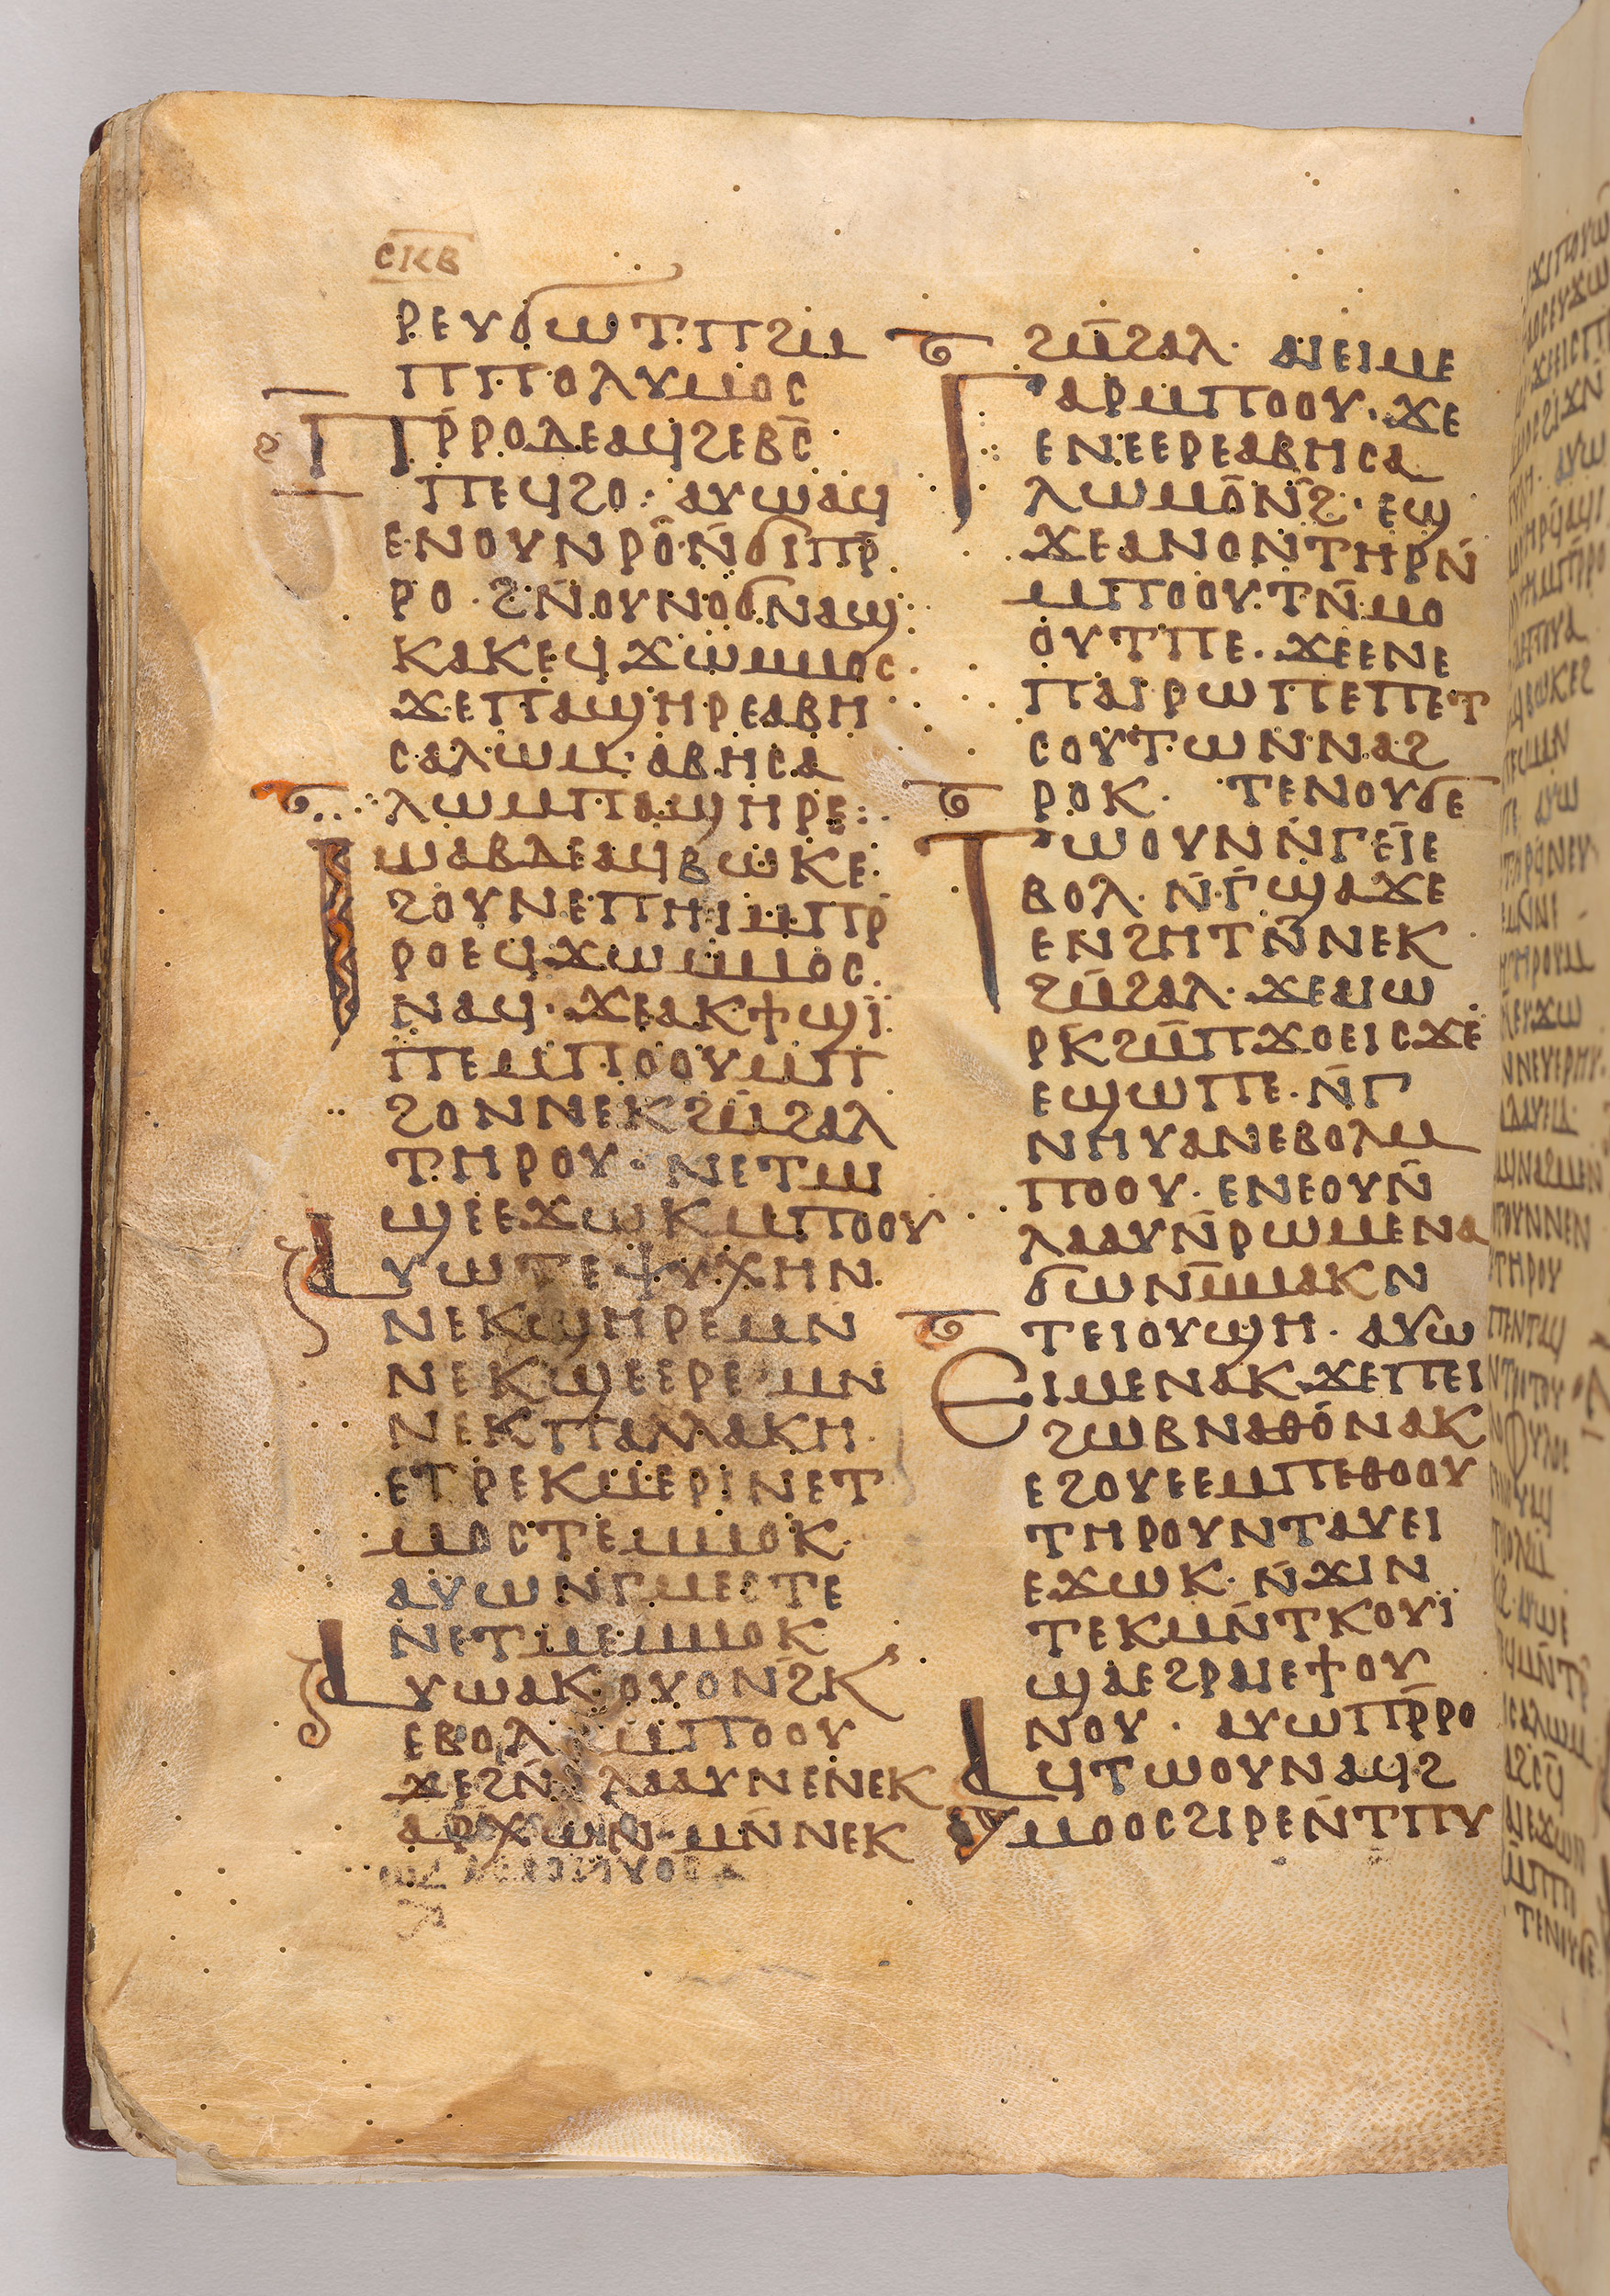 ⲥⲕⲃ
ⲣⲉⲩϭⲱⲧⲡ ϩⲙ
ⲡⲡⲟⲗⲩⲙⲟⲥ
ⲡⲣ̄ⲣⲟ ⲇⲉ ⲁϥϩⲉⲃⲥ̄
ⲡⲉϥϩⲟ: ⲁⲩⲱ ⲁϥ
ⲉⲛⲟⲩⲛⲣⲟ̄ⲛ̄ϭⲓⲡⲣ̄
ⲣⲟ · ϩⲛ̄ⲟⲩⲛⲟϭ ⲛⲁϣ
ⲕⲁⲕ ⲉϥϫⲱⲙⲙⲟⲥ·
ϫⲉ ⲡⲁϣⲏⲣⲉ ⲁⲃⲏ
ⲥⲁⲗⲱⲙ· ⲁⲃⲏⲥⲁ
ⲗⲱⲙ ⲡⲁϣⲏⲣⲉ:
ⲓⲱⲁⲃ ⲇⲉ ⲁϥⲃⲱⲕ ⲉ
ϩⲟⲩⲛ ⲉⲡⲏⲓ ⲙⲡⲣ̄
ⲣⲟ ⲉϥϫⲱ ⲙⲙⲟⲥ
ⲛⲁϥ· ϫⲉ ⲁⲕϯϣⲓ̈
ⲡⲉ ⲙⲡⲟⲟⲩ ⲙⲡ
ϩⲟ ⲛⲛⲉⲕϩⲙ̄ϩⲁⲗ
ⲧⲏⲣⲟⲩ· ⲛⲉⲧⲙ
ϣⲓⲉϫⲱⲕ ⲙⲡⲟⲟⲩ
ⲁⲩⲱ ⲧⲉⲯⲩⲭⲏ ⲛ
ⲛⲉⲕϣⲏⲣⲉ ⲙⲛ
ⲛⲉⲕϣⲉⲉⲣⲉ ⲙⲛ
ⲛⲉⲕⲡⲁⲗⲗⲁⲕⲏ
ⲉⲧⲣⲉⲕⲙⲉⲣⲓⲛⲉⲧ
ⲙⲟⲥⲧⲉ ⲙⲙⲟⲕ
ⲁⲩⲱ ⲛⲅⲙⲉⲥⲧⲉ
ⲛⲉⲧⲙⲉ ⲙⲙⲟⲕ
ⲁⲩⲱ ⲁⲕⲟⲩⲟⲛϩ̄ⲕ
ⲉⲃⲟⲗ ⲙⲡⲟⲟⲩ
ϫⲉϩⲛ̄ ⲗⲁⲁⲩ ⲛⲉ ⲛⲉⲕ
ⲁⲣⲭⲱⲛ ⲙⲛ̄ ⲛⲉⲕ
ϩⲙ̄ϩⲁⲗ· ⲁⲓⲉⲓⲙⲉ
ⲅⲁⲣ ⲙⲡⲟⲟⲩ· ϫⲉ
ⲉⲛⲉ ⲉⲣⲉ ⲁⲃⲏⲥⲁ
ⲗⲱⲙ ⲟ̄ⲛϩ̄· ⲉϣ
ϫⲉ ⲁⲛⲟⲛ ⲧⲏⲣⲛ̄
ⲙⲡⲟⲟⲩ ⲧⲛ̄ⲙⲟ
ⲟⲩⲧ ⲡⲉ· ϫⲉ ⲉⲛⲉ
ⲡⲁⲓ ⲣⲱ ⲡⲉ ⲡⲉⲧ
ⲥⲟⲩⲧⲱⲛ ⲛⲛⲁϩ
ⲣⲟⲕ· ⲧⲉⲛⲟⲩϭⲉ
ⲧⲱⲟⲩⲛ ⲛ̄ⲅⲉⲓ̄ⲉ
ⲃⲟⲗ· ⲛ̄ⲅ̄ϣⲁϫⲉ
ⲉⲛϩⲏⲧ ⲛ̄ⲛⲉⲕ
ϩⲙ̄ϩⲁⲗ· ϫⲉ ⲁⲓⲱ
ⲣⲕ ϩⲙ̄ⲡϫⲟⲉⲓⲥ ϫⲉ
ⲉϣⲱⲡⲉ· ⲛ̄ⲅ
ⲛⲏⲩ ⲁⲛ ⲉⲃⲟⲗ ⲙ
ⲡⲟⲟⲩ· ⲉⲛⲉ ⲟⲩⲛ̄
ⲗⲁⲁⲩ ⲛ̄ⲣⲱⲙⲉ ⲛⲁ
ϭⲱ ⲛⲙ̄ⲙⲁⲕ ⲛ
ⲧⲉⲓⲟⲩϣⲏ· ⲁⲩⲱ
ⲉⲓⲙⲉ ⲛⲁⲕ ϫⲉ ⲡⲉⲓ
ϩⲱⲃ ⲛⲁⲑⲟ ⲛⲁⲕ
ⲉϩⲟⲩⲉ ⲉⲙⲡⲉⲑⲟⲟⲩ
ⲧⲏⲣⲟⲩ ⲛⲧⲁⲩⲉⲓ
ⲉϫⲱⲕ· ⲛ̄ϫⲓⲛ
ⲧⲉⲕⲙⲛ̄ⲧⲕⲟⲩⲓ̈
ϣⲁⲉϩⲣⲁⲓ ⲉϯⲟⲩ
ⲛⲟⲩ· ⲁⲩⲱ ⲡⲣ̄ⲣⲟ
ⲁϥⲧⲱⲟⲩⲛ ⲁϥϩ
ⲙⲟⲟⲥ ϩⲓⲣⲉⲛ̄ ⲧⲡⲩ